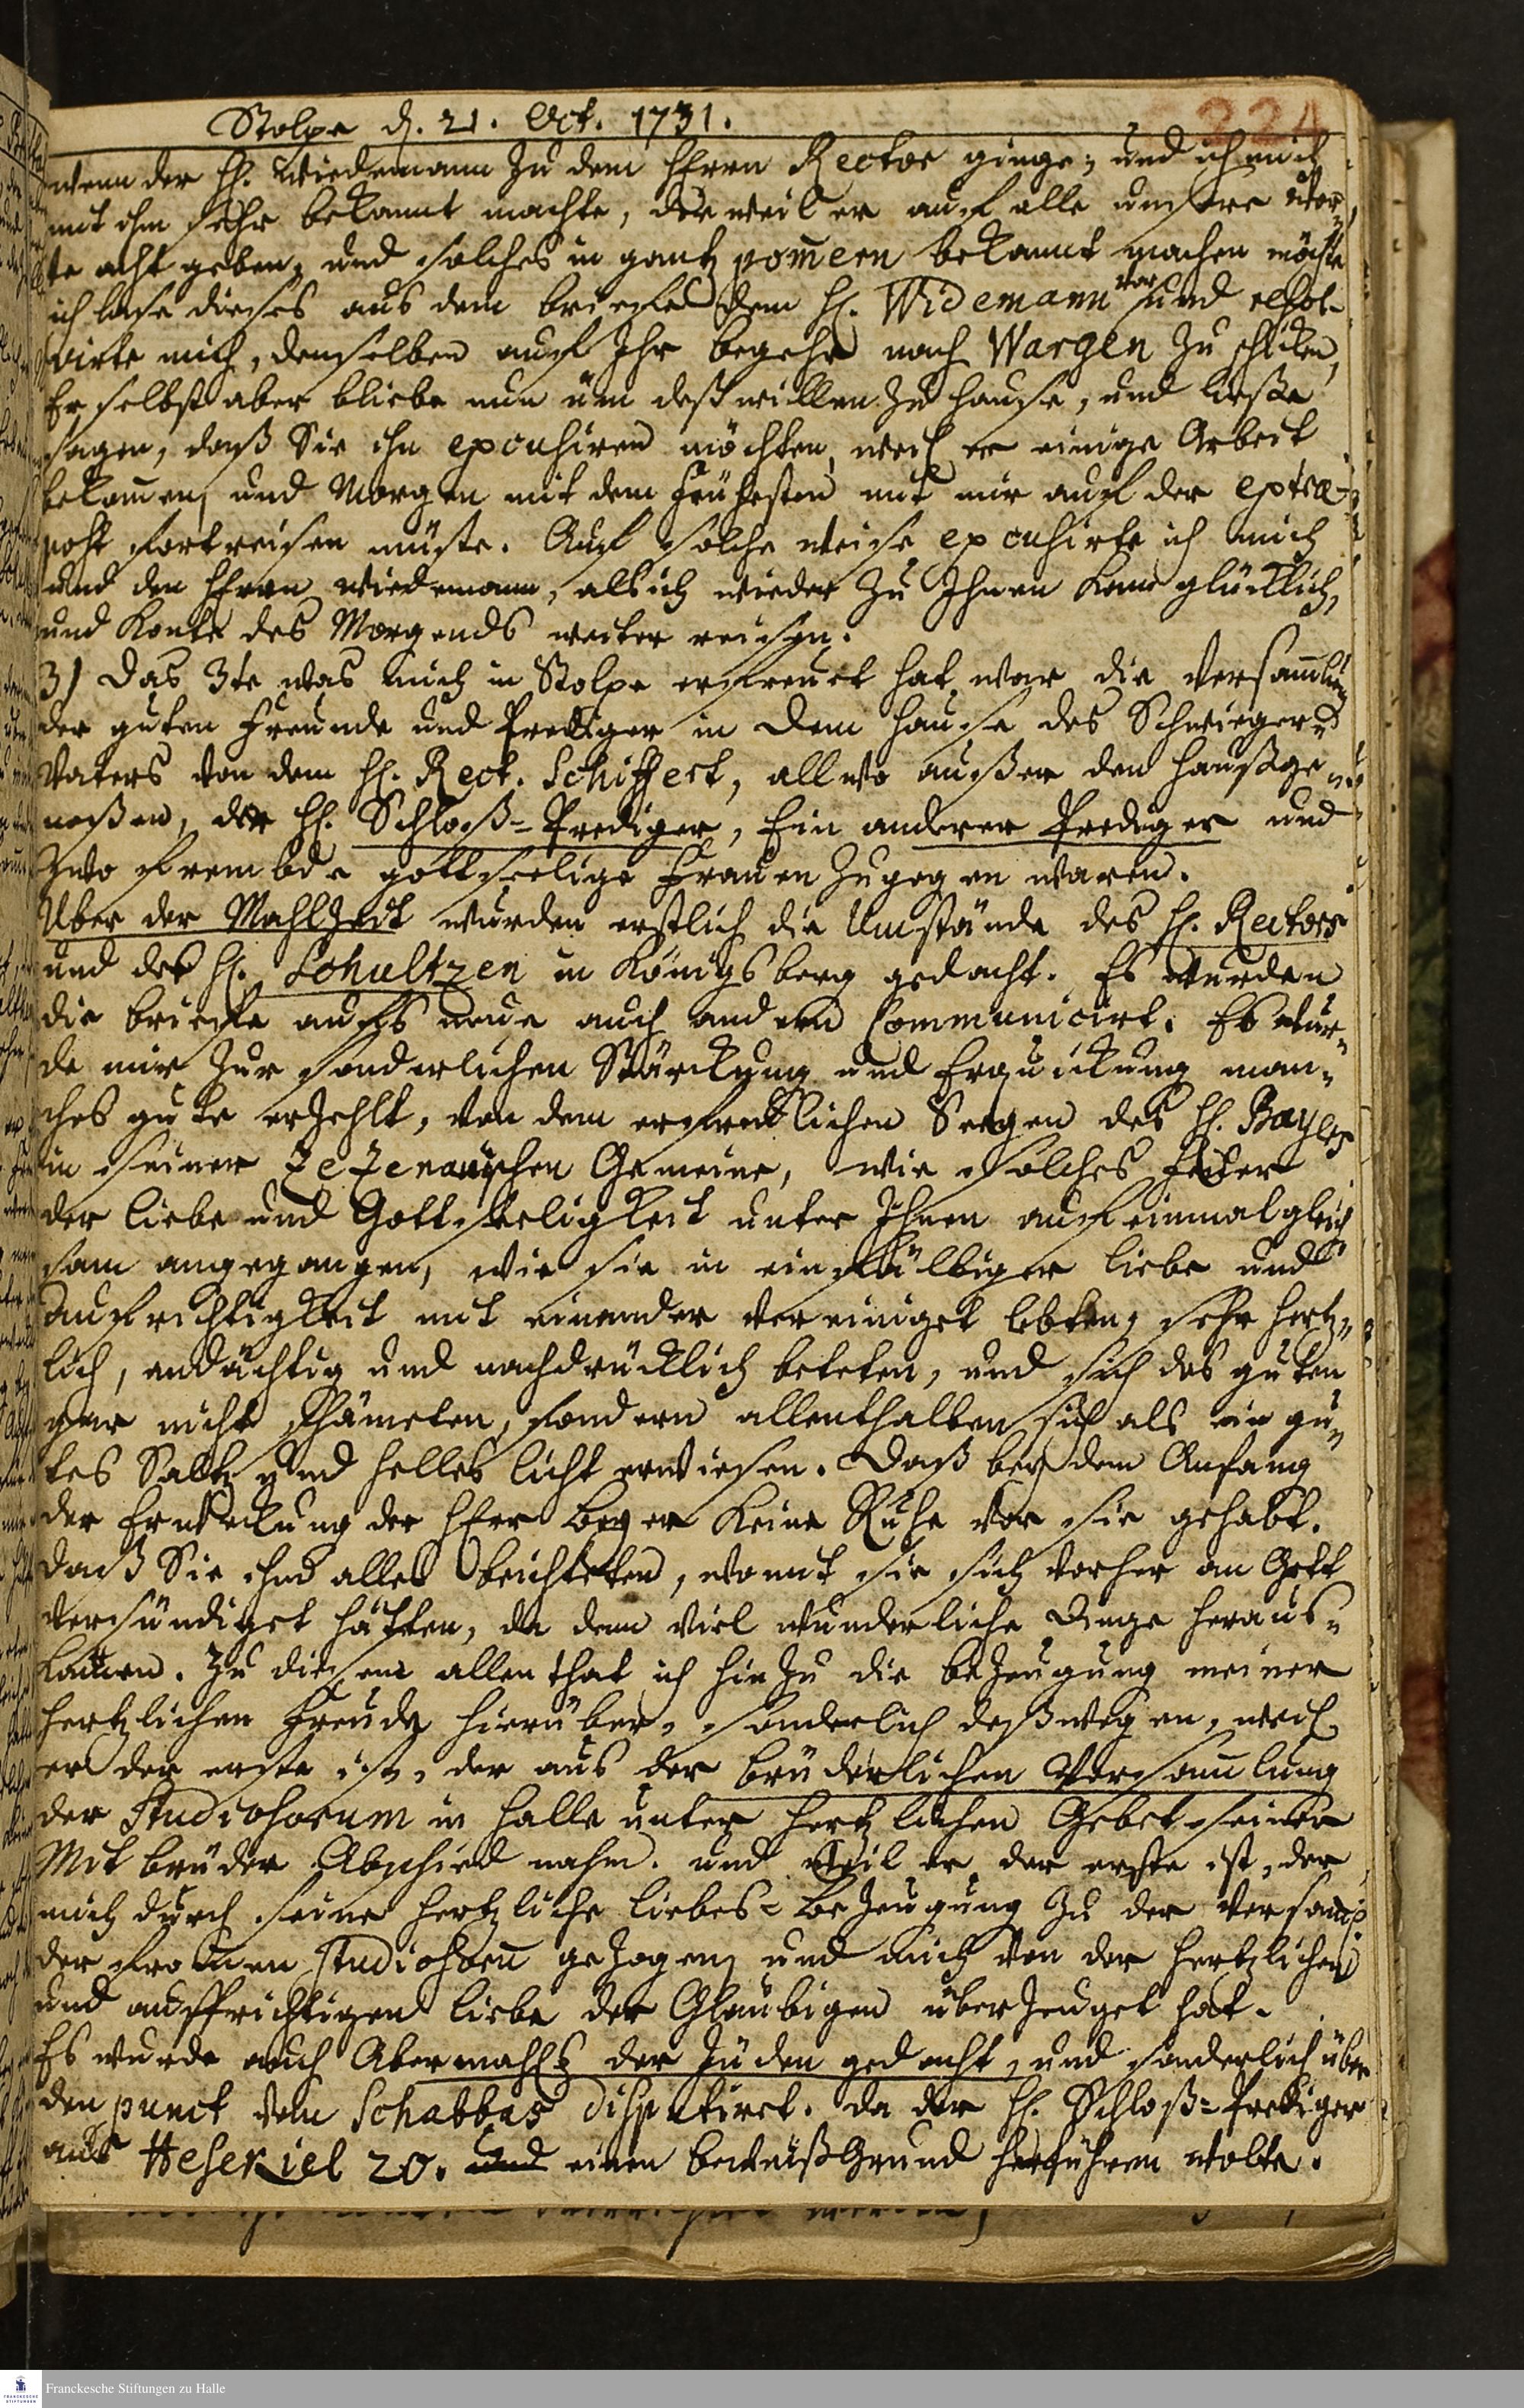 Stolpe d. 21. Oct. 1731.
224
wenn der H. Wiedemann zu dem Herrn Rector ginge; und ich mich
mit ihm sehr bekannt machte, derweil er auf alle unsere Wor-
te acht geben, und solches in gantz pom̄ern bekannt machen möchte
ich lase dieses aus dem briefe dem H. Widemann vor und resol-
virte mich, demselben auf Ihr begehr nach Wargen zu schiken,
Er selbst aber bliebe nun üm deßwillen zu hause, und ließe
sagen, daß Sie ihn excusiren möchten, weil er einige Arbeit
bekom̄en, und Morgen mit dem frühesten mit mir auf der extra-
post fortreisen müste. Auf solche weise excusirte ich mich
und den Herrn Wiedemann, als ich wieder zu Ihnen kam glücklich,
und konte des Morgends weiter reisen.
3) Das 3te was mich in Stolpe erfreuet hat, war die Versam̄lung
der guten Freunde und Prediger in dem Hause des Schwieger-
Vaters von dem H. Rect. Schiffert, allwo außer den Haußge-
noßen, der H. Schloß-Prediger, Ein anderer Prediger und
zwo frembde gottseelige Frauen zugegen waren.
Uber der Mahlzeit wurden erstlich die Umstände des H. Rectors
und des H. Schultzen in Königsberg gedacht. Es wurden
die briefe aufs neue auch andern Communicirt. Es wur-
de mir zur sonderlichen Stärckung und Erquickung man-
ches gute erzehlt, von dem erfreulichen Seegen des H. Bayers
in seiner Zezenauischen Gemeine, wie solches feuer
der liebe und Gottseeligkeit unter Ihnen auf einmal gleich
sam angegangen, wie sie in einfältiger liebe und
Aufrichtigkeit mit einander vereiniget lebten, sehr hertz-
lich, andächtig und nachdrücklich beteten, und sich des guten
gar nicht schämeten, sondern allenthalben sich als ein gu-
tes Saltz und helles licht erwiesen. Daß bey dem Anfang
der Erweckung der Herr Beyer keine Ruhe vor sie gehabt.
daß Sie ihm alles beichteten, womit sie sich vorher an Gott
versündiget hätten, da denn viel wunderliche Dinge heraus-
kamen. Zu diesem allen that ich hinzu die bezeugung meiner
hertzlichen Freude hierüber, sonderlich deßwegen, weil
er der erste ist, der aus der brüderlichen Versam̄lung
der Studiosorum in Halle unter hertzlichen Gebet seiner
Mitbrüder Abschied nahm. und weil er der erste ist, der
mich durch seine hertzliche liebes-bezeugung zu der Versam̄l.
der from̄en Studiosoru͞ gezogen, und mich von der hertzlichen
und aufrichtigen liebe der Gläubigen überzeuget hat.
Es wurde auch Abermahls der Jüden gedacht, und sonderlich über
den punct vom Schabbas disputiret. da der H. Schloß-Prediger
aus Hesekiel 20. und einen beweißGrund herführen wolte.
Franckesche Stiftungen zu Halle